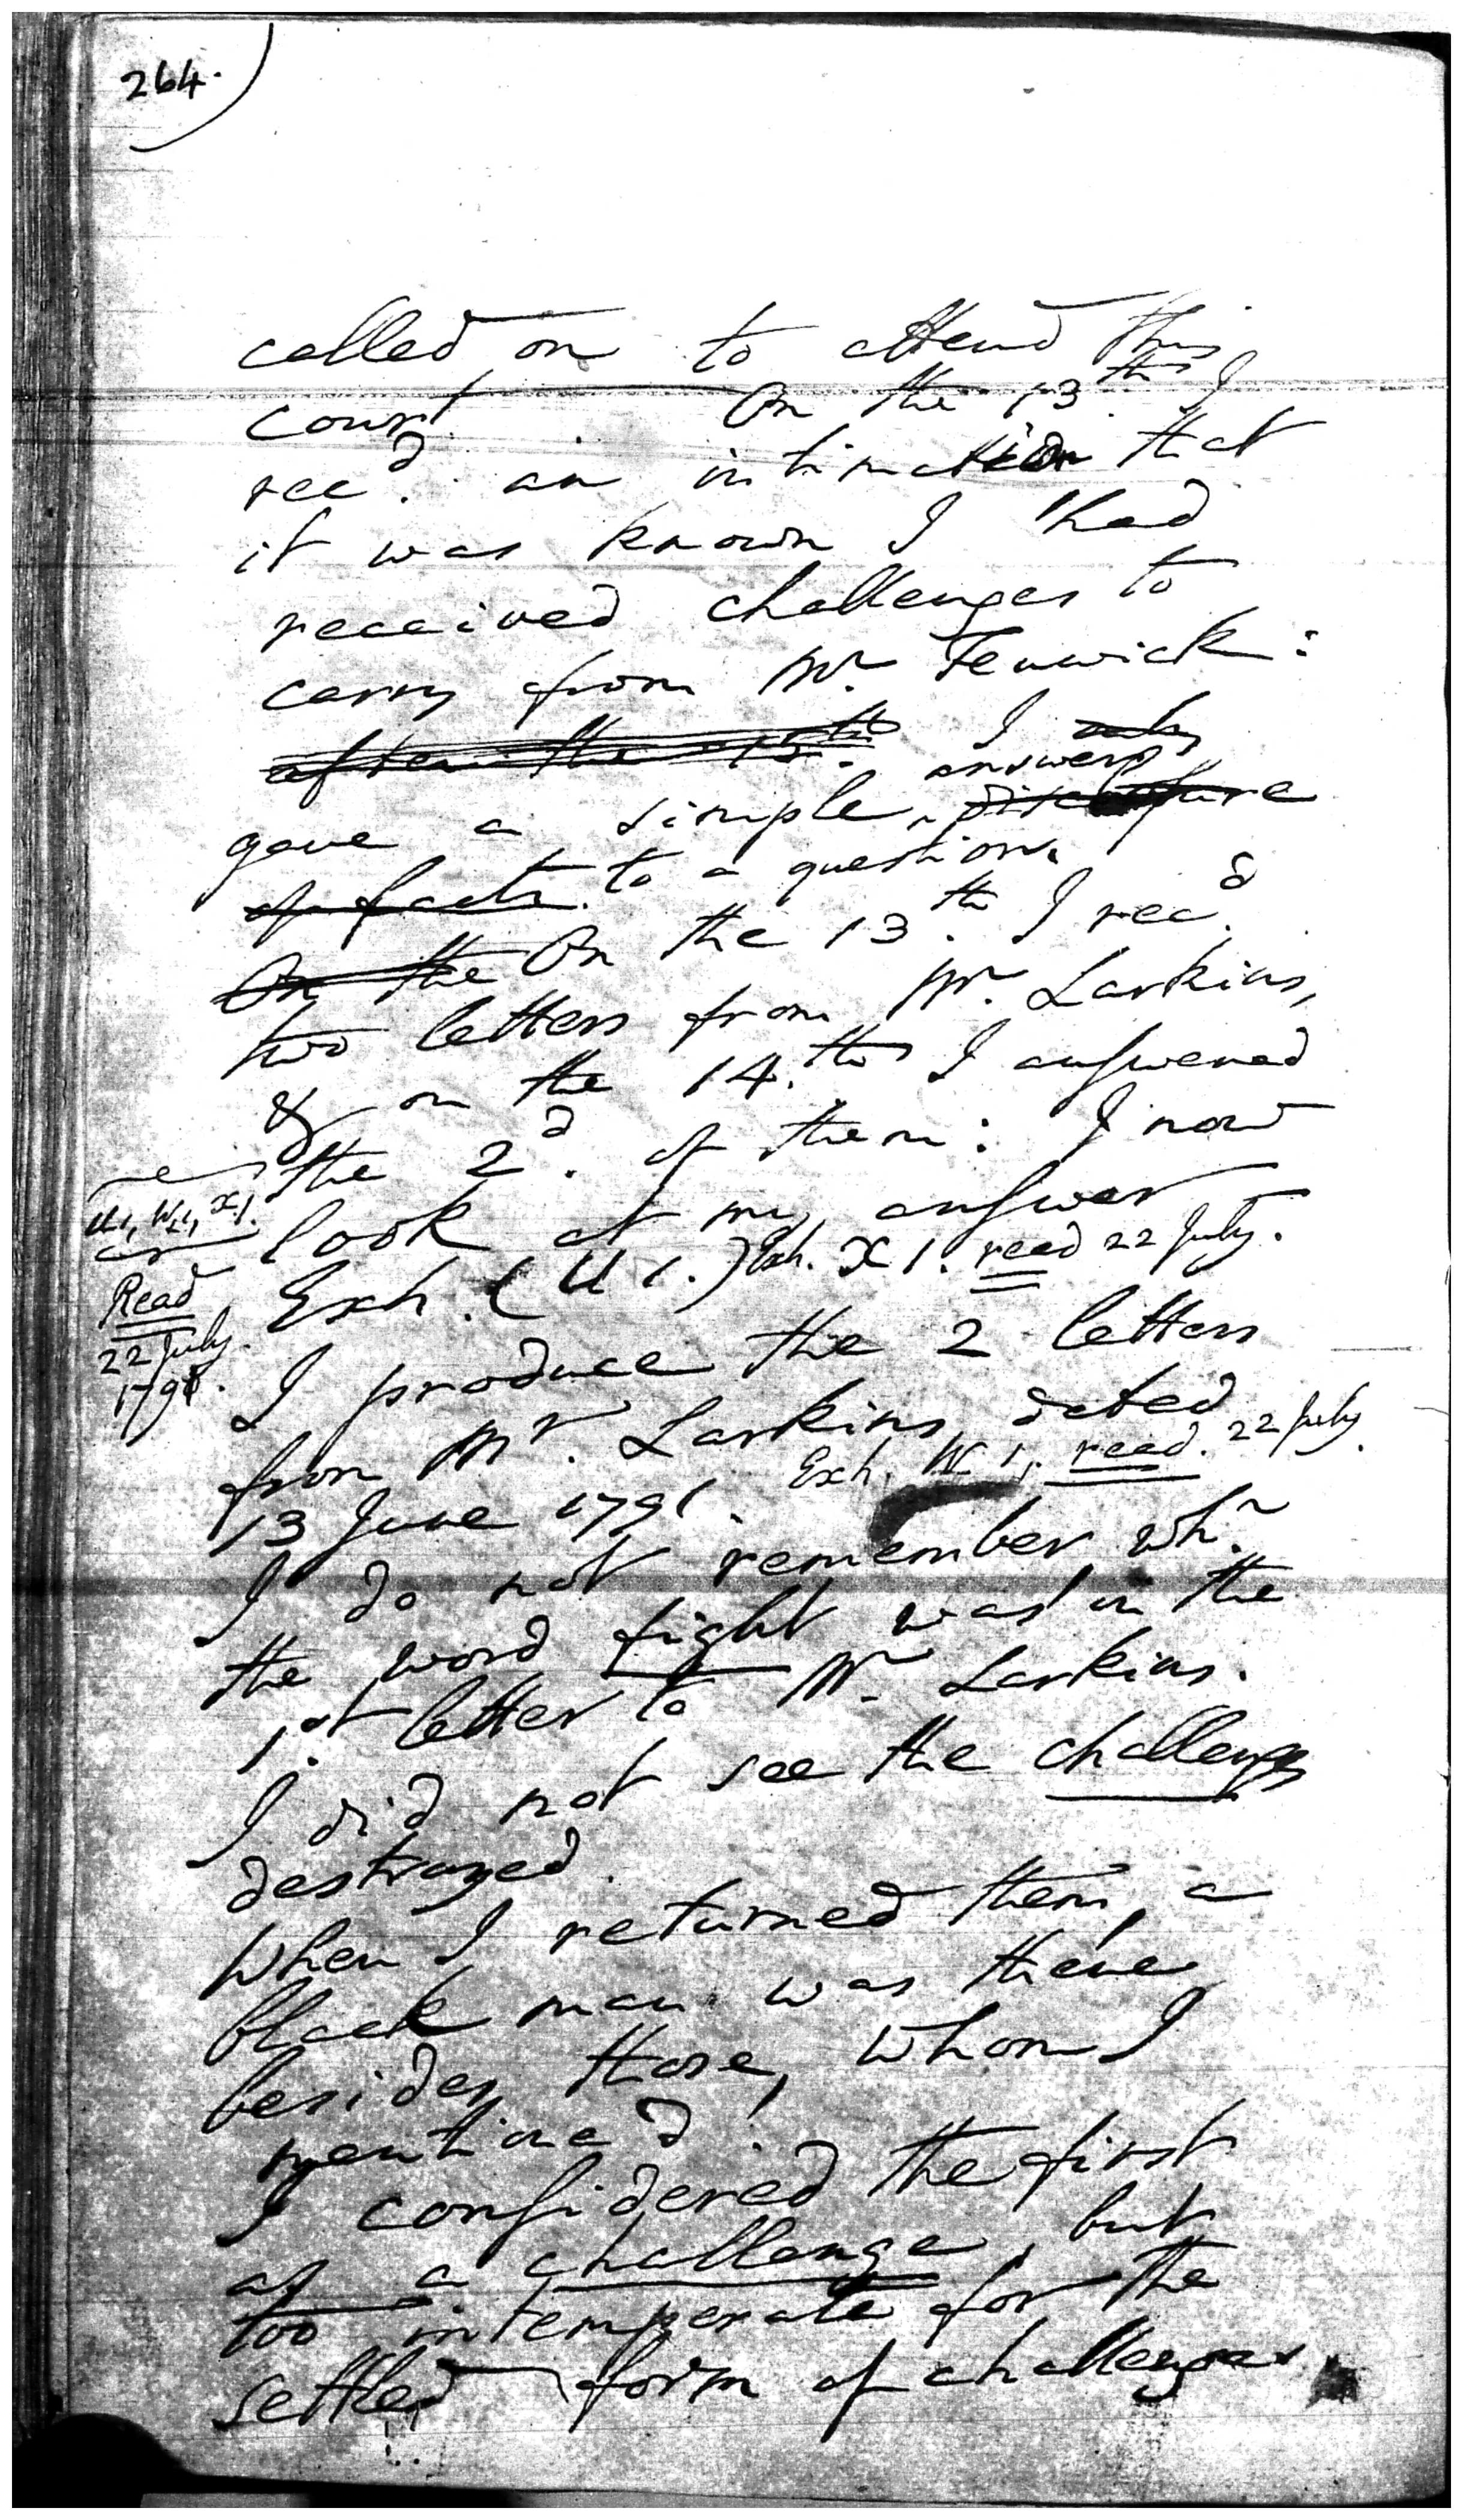 264.
called on to attend this
court. On the 13.th I
rec.d an intimation that
it was known I had
received challenges to
carry from Mr. Fenwick:
after the 13th. I only
gave a simple answer
of facts to a question.
On the On the 13.th I rec.d
two letters from Mr. Larkins,
& on the 14.th I answered
the 2.d of them: I now
look at my answer
Exh. (U 1.) Exh. X 1. read 22 July.
U1, W1, X1.
Read
22 July.
1791.
I produce the 2 letters
from Mr. Larkins dated
13 June 1791. Exh. W 1, read. 22 July.
I do not remember whr.
the word fight was in the
1.st letter to Mr. Larkins.
I did not see the challenges
destroyed.
When I returned them, a
black man was there
besides those, whom I
mentioned.
I considered the first
as a challenge, but
too intemperate for the
settled form of challenges